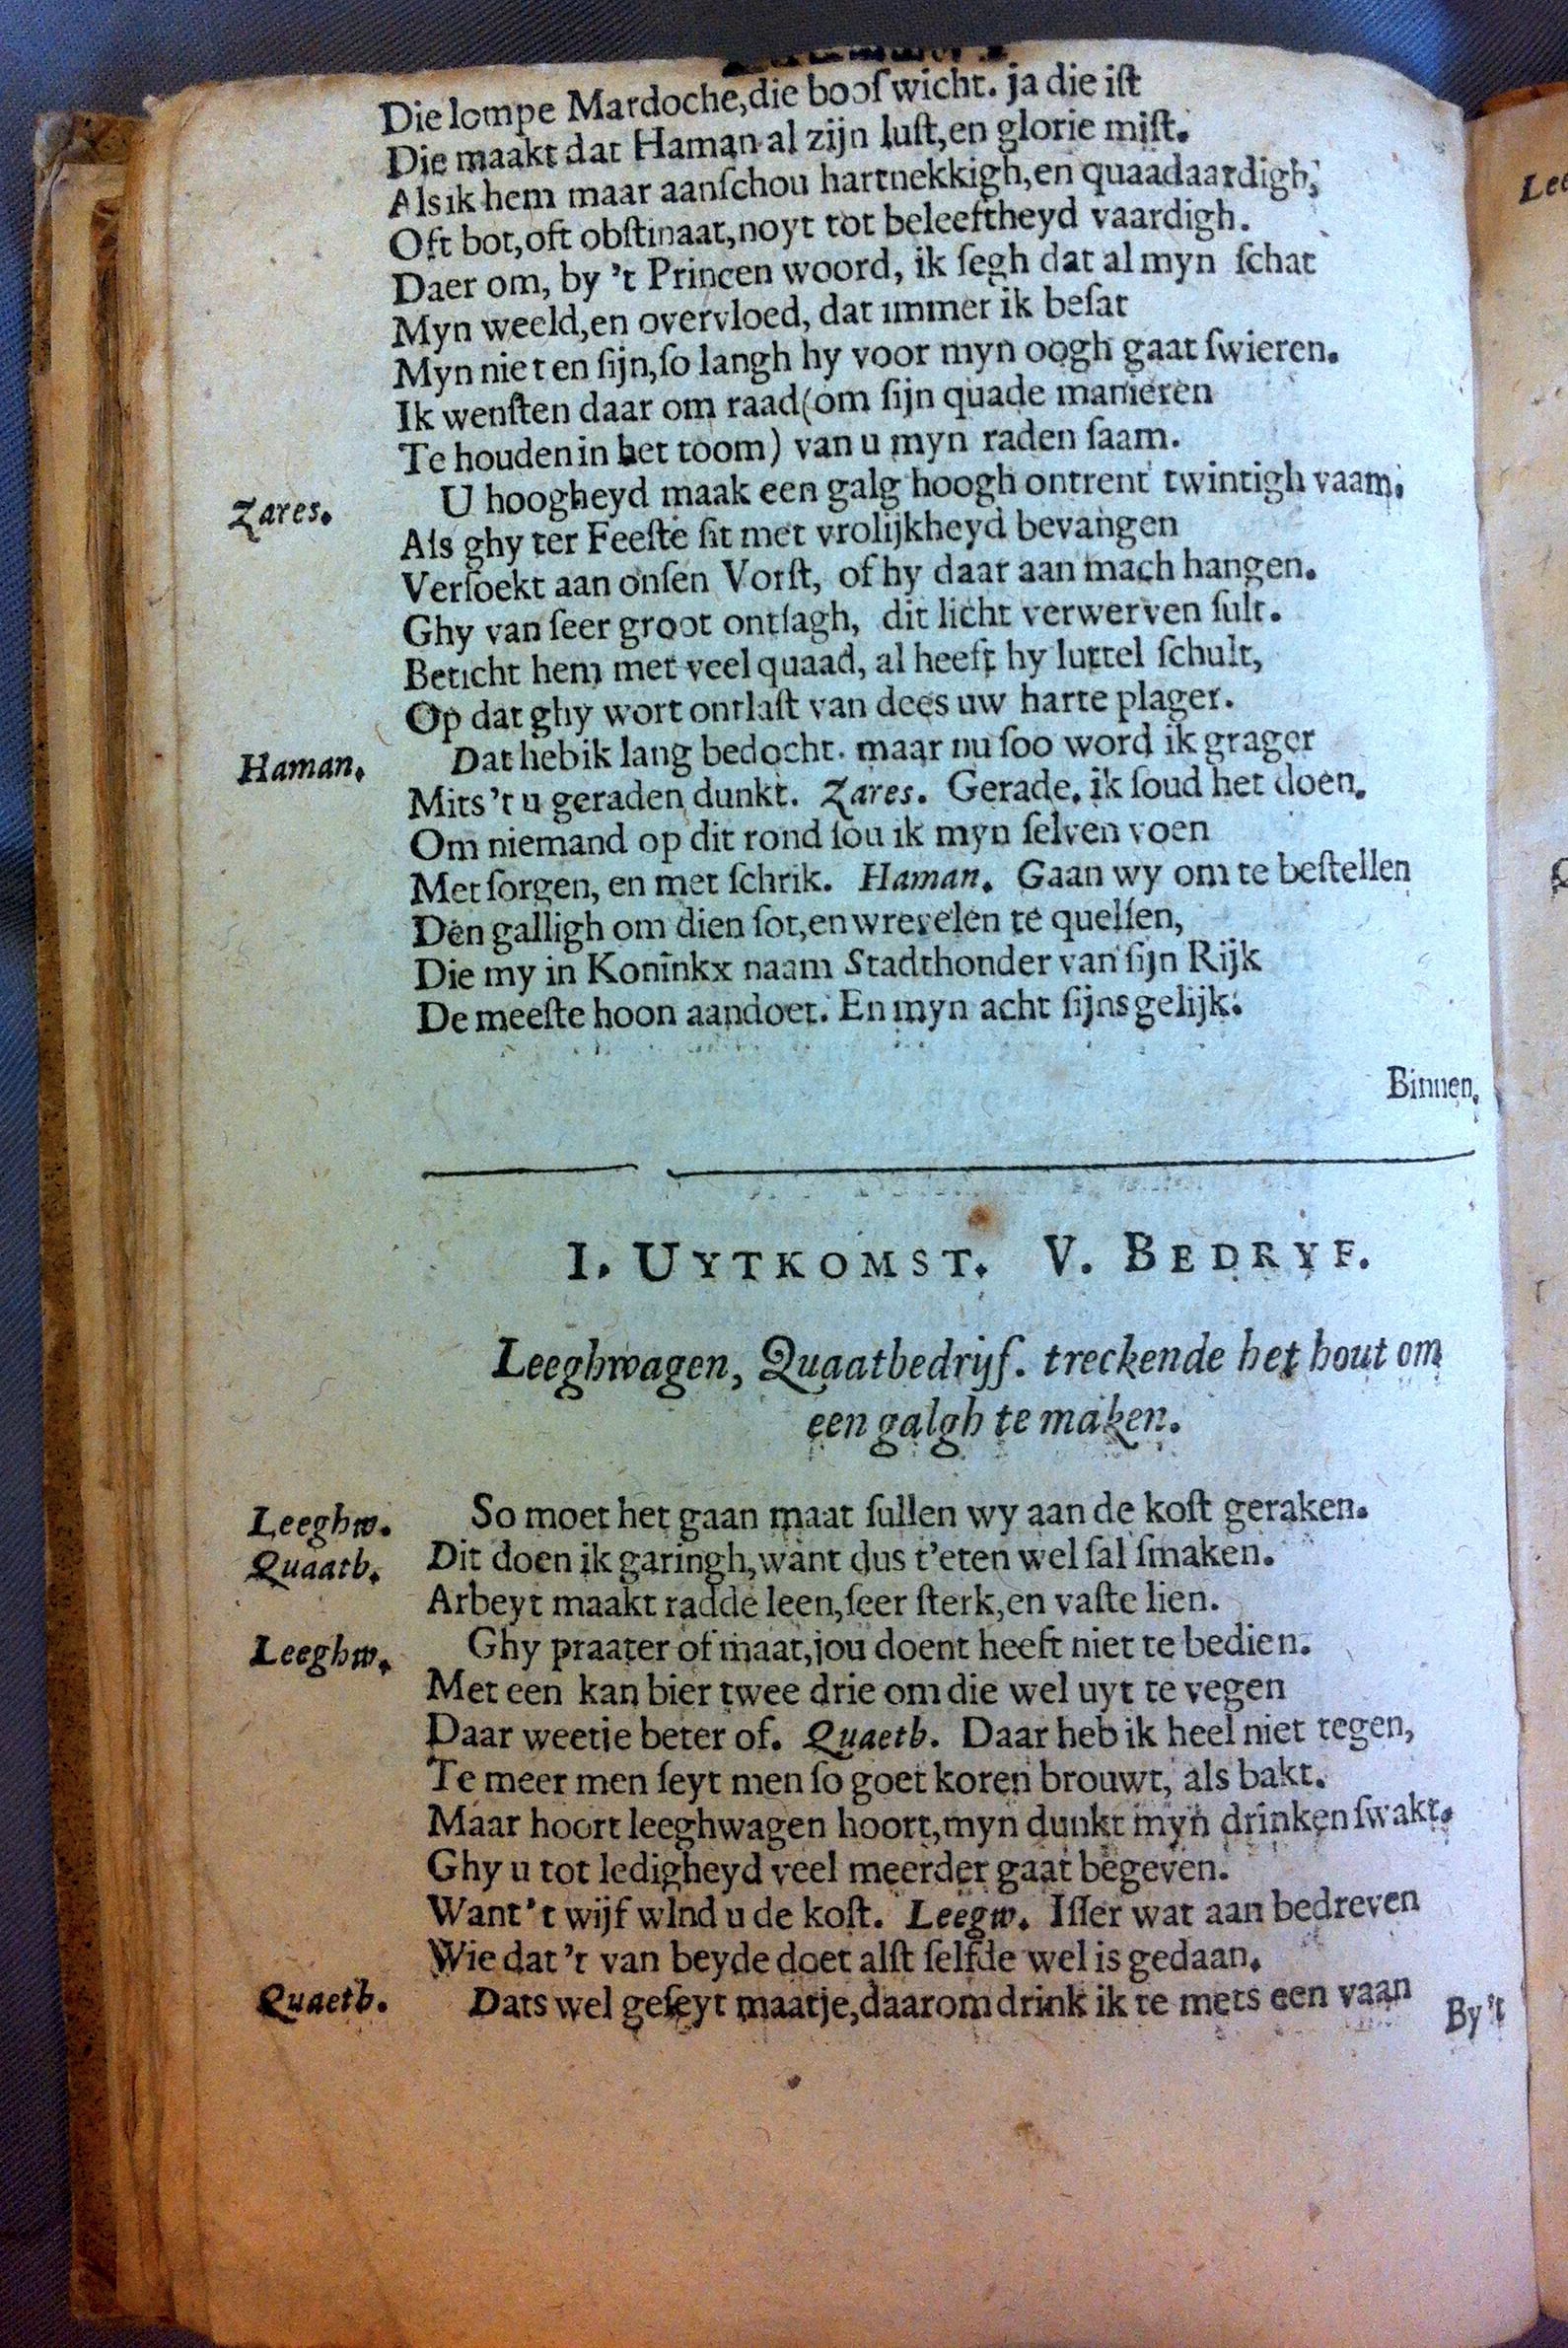 Die lompe Mardoche, die booſwicht. ja die iſt
Die maakt dat Haman al zijn luſt, en glorie miſt.
Als ik hem maar aanſchou hartnekkigh, en quaadaardigh,
Oft bot, oft obſtinaat, noyt tot beleeftheyd vaardigh.
Daer om, by 't Princen woord, ik ſegh dat al myn ſchat
Myn weeld, en overvloed, dat immer ik beſat
Myn niet en ſijn, ſo langh hy voor myn oogh gaat ſwieren.
Ik wenſten daar om raad (om ſijn quade manieren
Te houden in het toom) van u myn raden ſaam.
Zares. U hoogheyd maak een galg hoogh ontrent twintigh vaam,
Als ghy ter Feeſte ſit met vrolijkheyd bevangen
Verſoekt aan onſen Vorſt, of hy daar aan mach hangen.
Ghy van ſeer groot ontſagh, dit licht verwerven ſult.
Beticht hem met veel quaad, al heeft hy luttel ſchult,
Op dat ghy wort ontlaſt van dees uw harte plager.
Haman. Dat heb ik lang bedocht. maar nu ſoo word ik grager
Mits 't u geraden dunkt. Zares. Gerade, ik ſoud het doen.
Om niemand op dit rond ſou ik myn ſelven voen
Met ſorgen, en met ſchrik. Haman. Gaan wy om te beſtellen
Den galligh om dien ſot, en wrevelen te quellen,
Die my in Koninkx naam Stadthonder van ſijn Rijk
De meeſte hoon aandoet. En myn acht ſijns gelijk.
Binnen.
I. UYTKOMST. V. BEDRYF.
Leeghwagen, Quaatbedrijf. treckende het hout om
een galgh te maken.
Leeghw. So moet het gaan maat ſullen wy aan de koſt geraken.
Quaatb. Dit doen ik garingh, want dus t'eten wel ſal ſmaken.
Arbeyt maakt radde leen, ſeer ſterk, en vaſte lien.
Leeghw. Ghy praater of maat, jou doent heeft niet te bedien.
Met een kan bier twee drie om die wel uyt te vegen
Daar weetje beter of. Quaetb. Daar heb ik heel niet tegen,
Te meer men ſeyt men ſo goet koren brouwt, als bakt.
Maar hoort leeghwagen hoort, myn dunkt myn drinken ſwakt.
Ghy u tot ledigheyd veel meerder gaat begeven.
Want 't wijf wlnd u de koſt. Leegw. Iſſer wat aan bedreven
Wie dat 't van beyde doet alſt ſelfde wel is gedaan.
Quaetb. Dats wel geſeyt maatje, daarom drink ik te mets een vaan
By 't